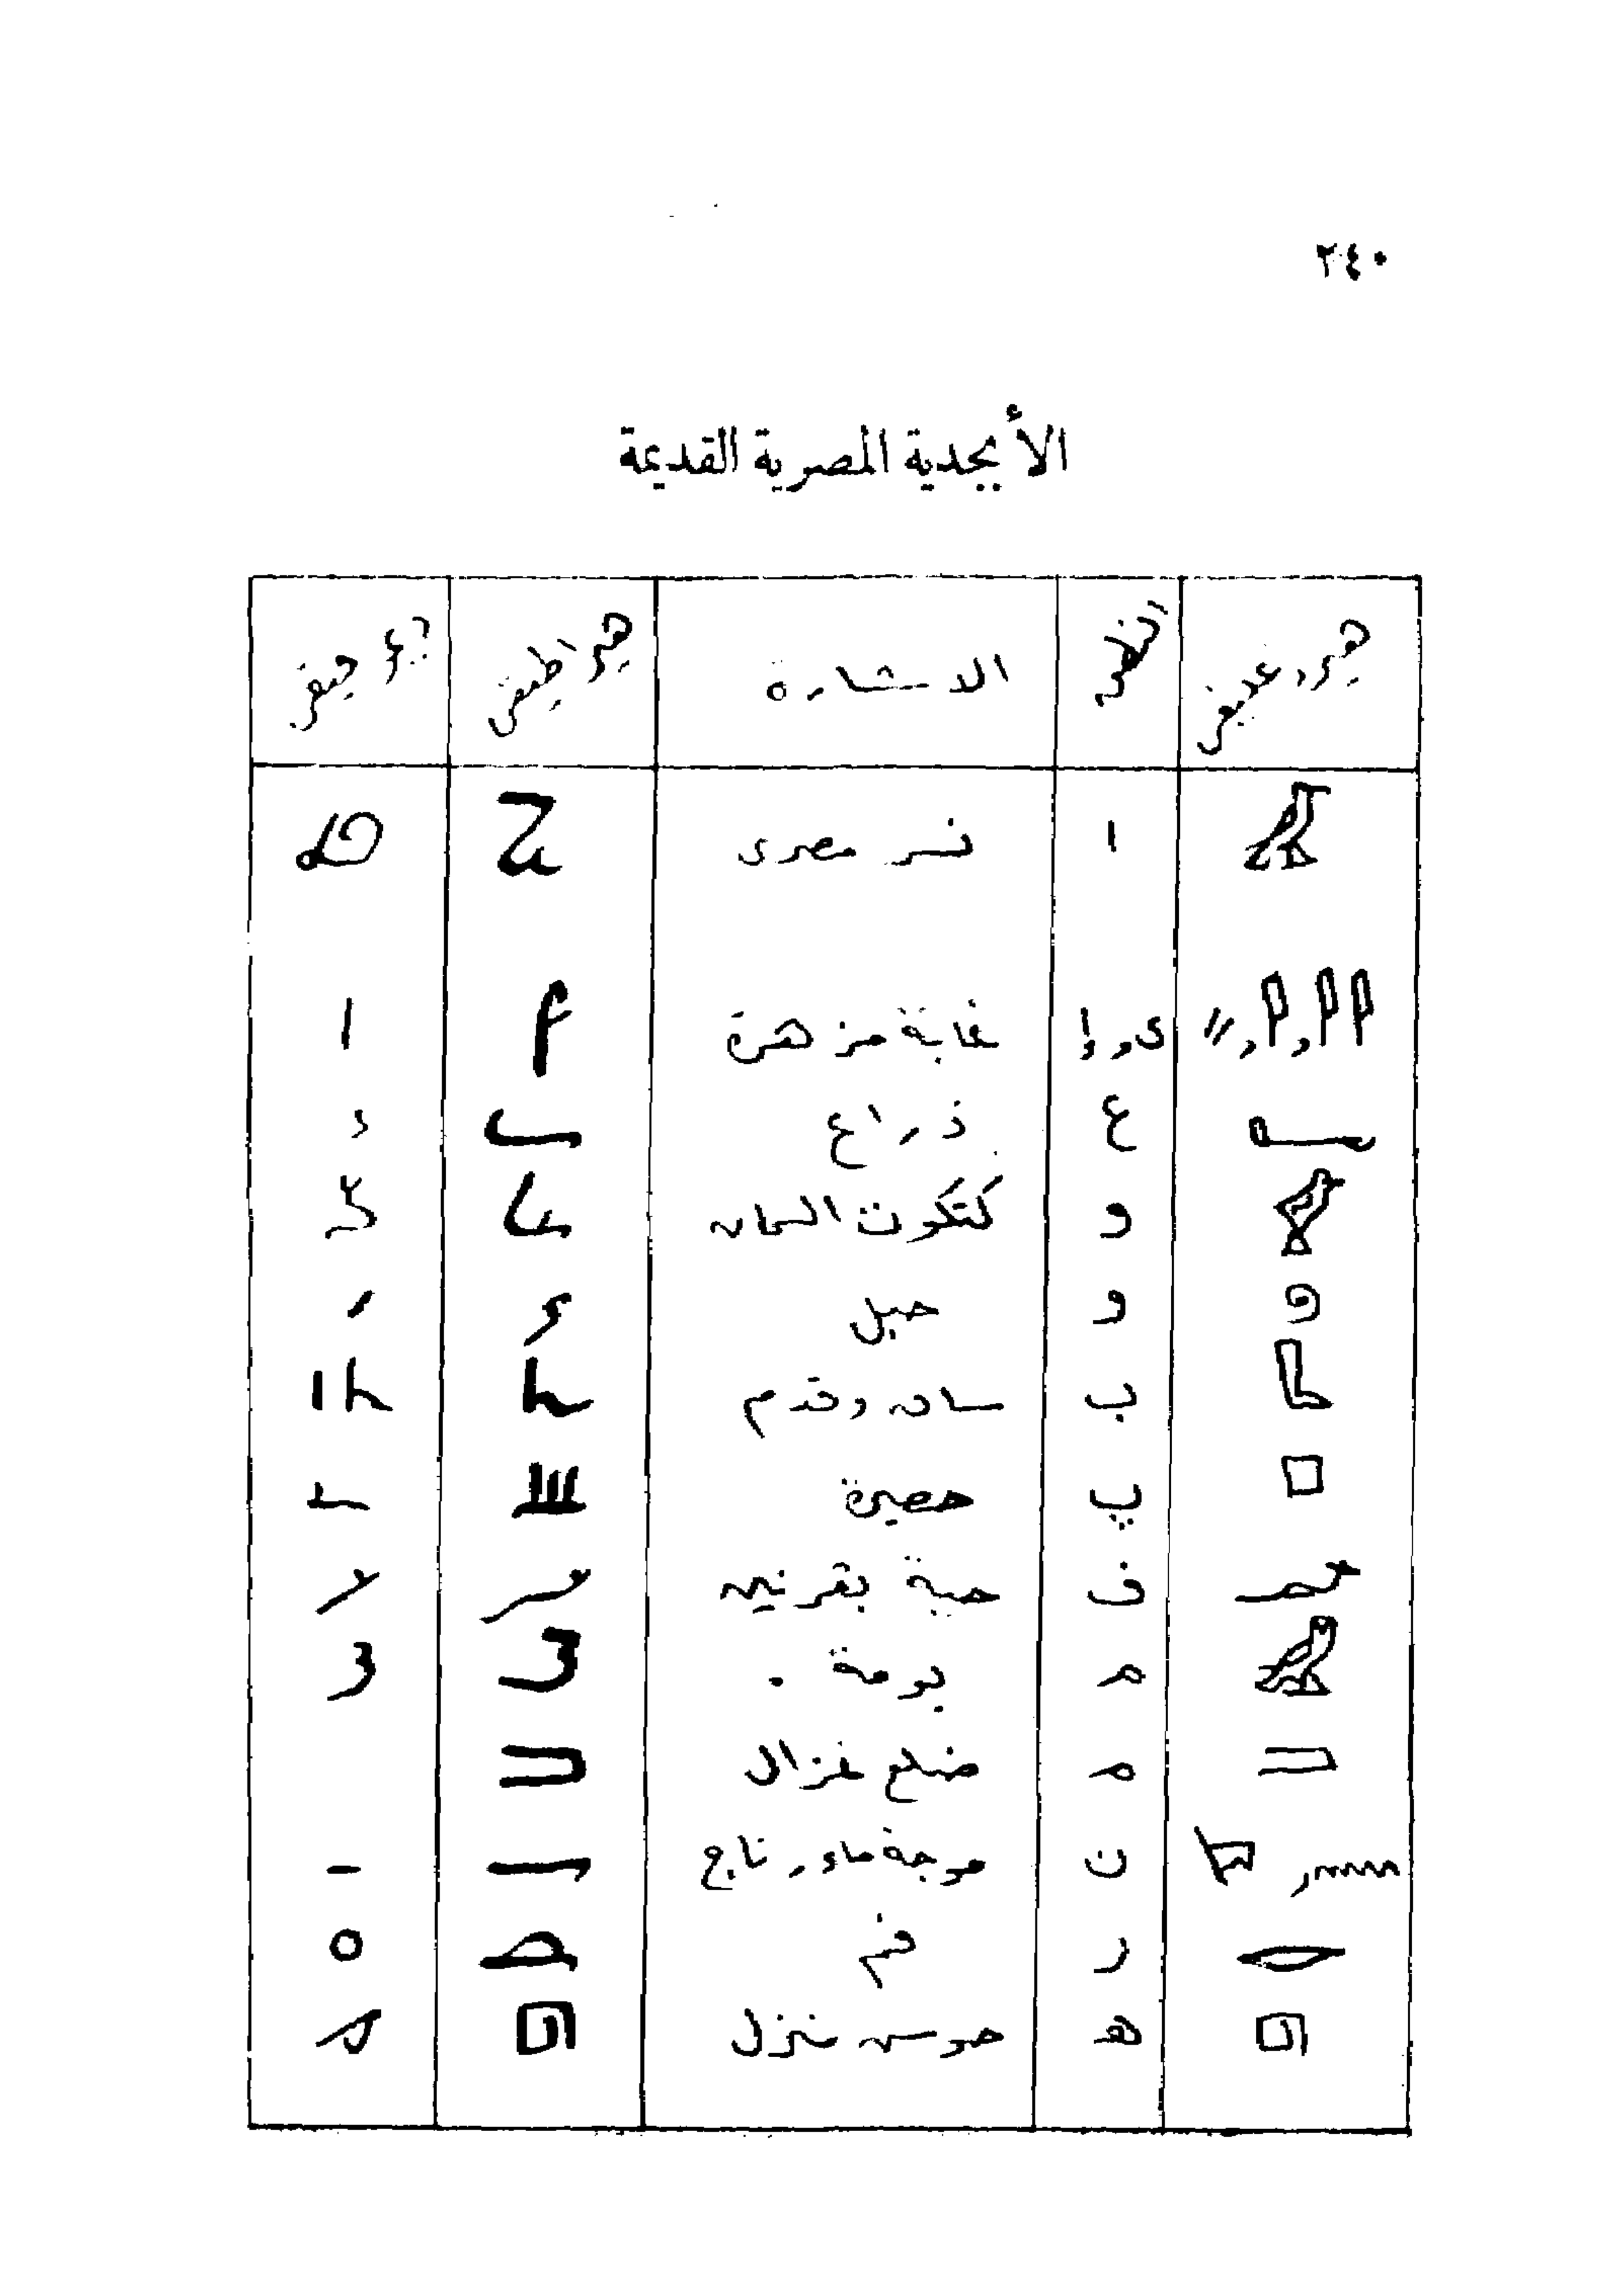 ٢٤٠
الأبجدية المصرية القديمة
هيروغليفى النطق الاشارة هيراطيقى
ا نسر مصرى
ى, إ غابة مزهرة
ع ذراع
و كتكوت السمان
و حبل
ب ساق وقدم
پ حصيرة
ف حية بقرنين
م بومة .
م ضلع غزال
ن موجة ماء, تاج
ر فم
ه حوش منزل